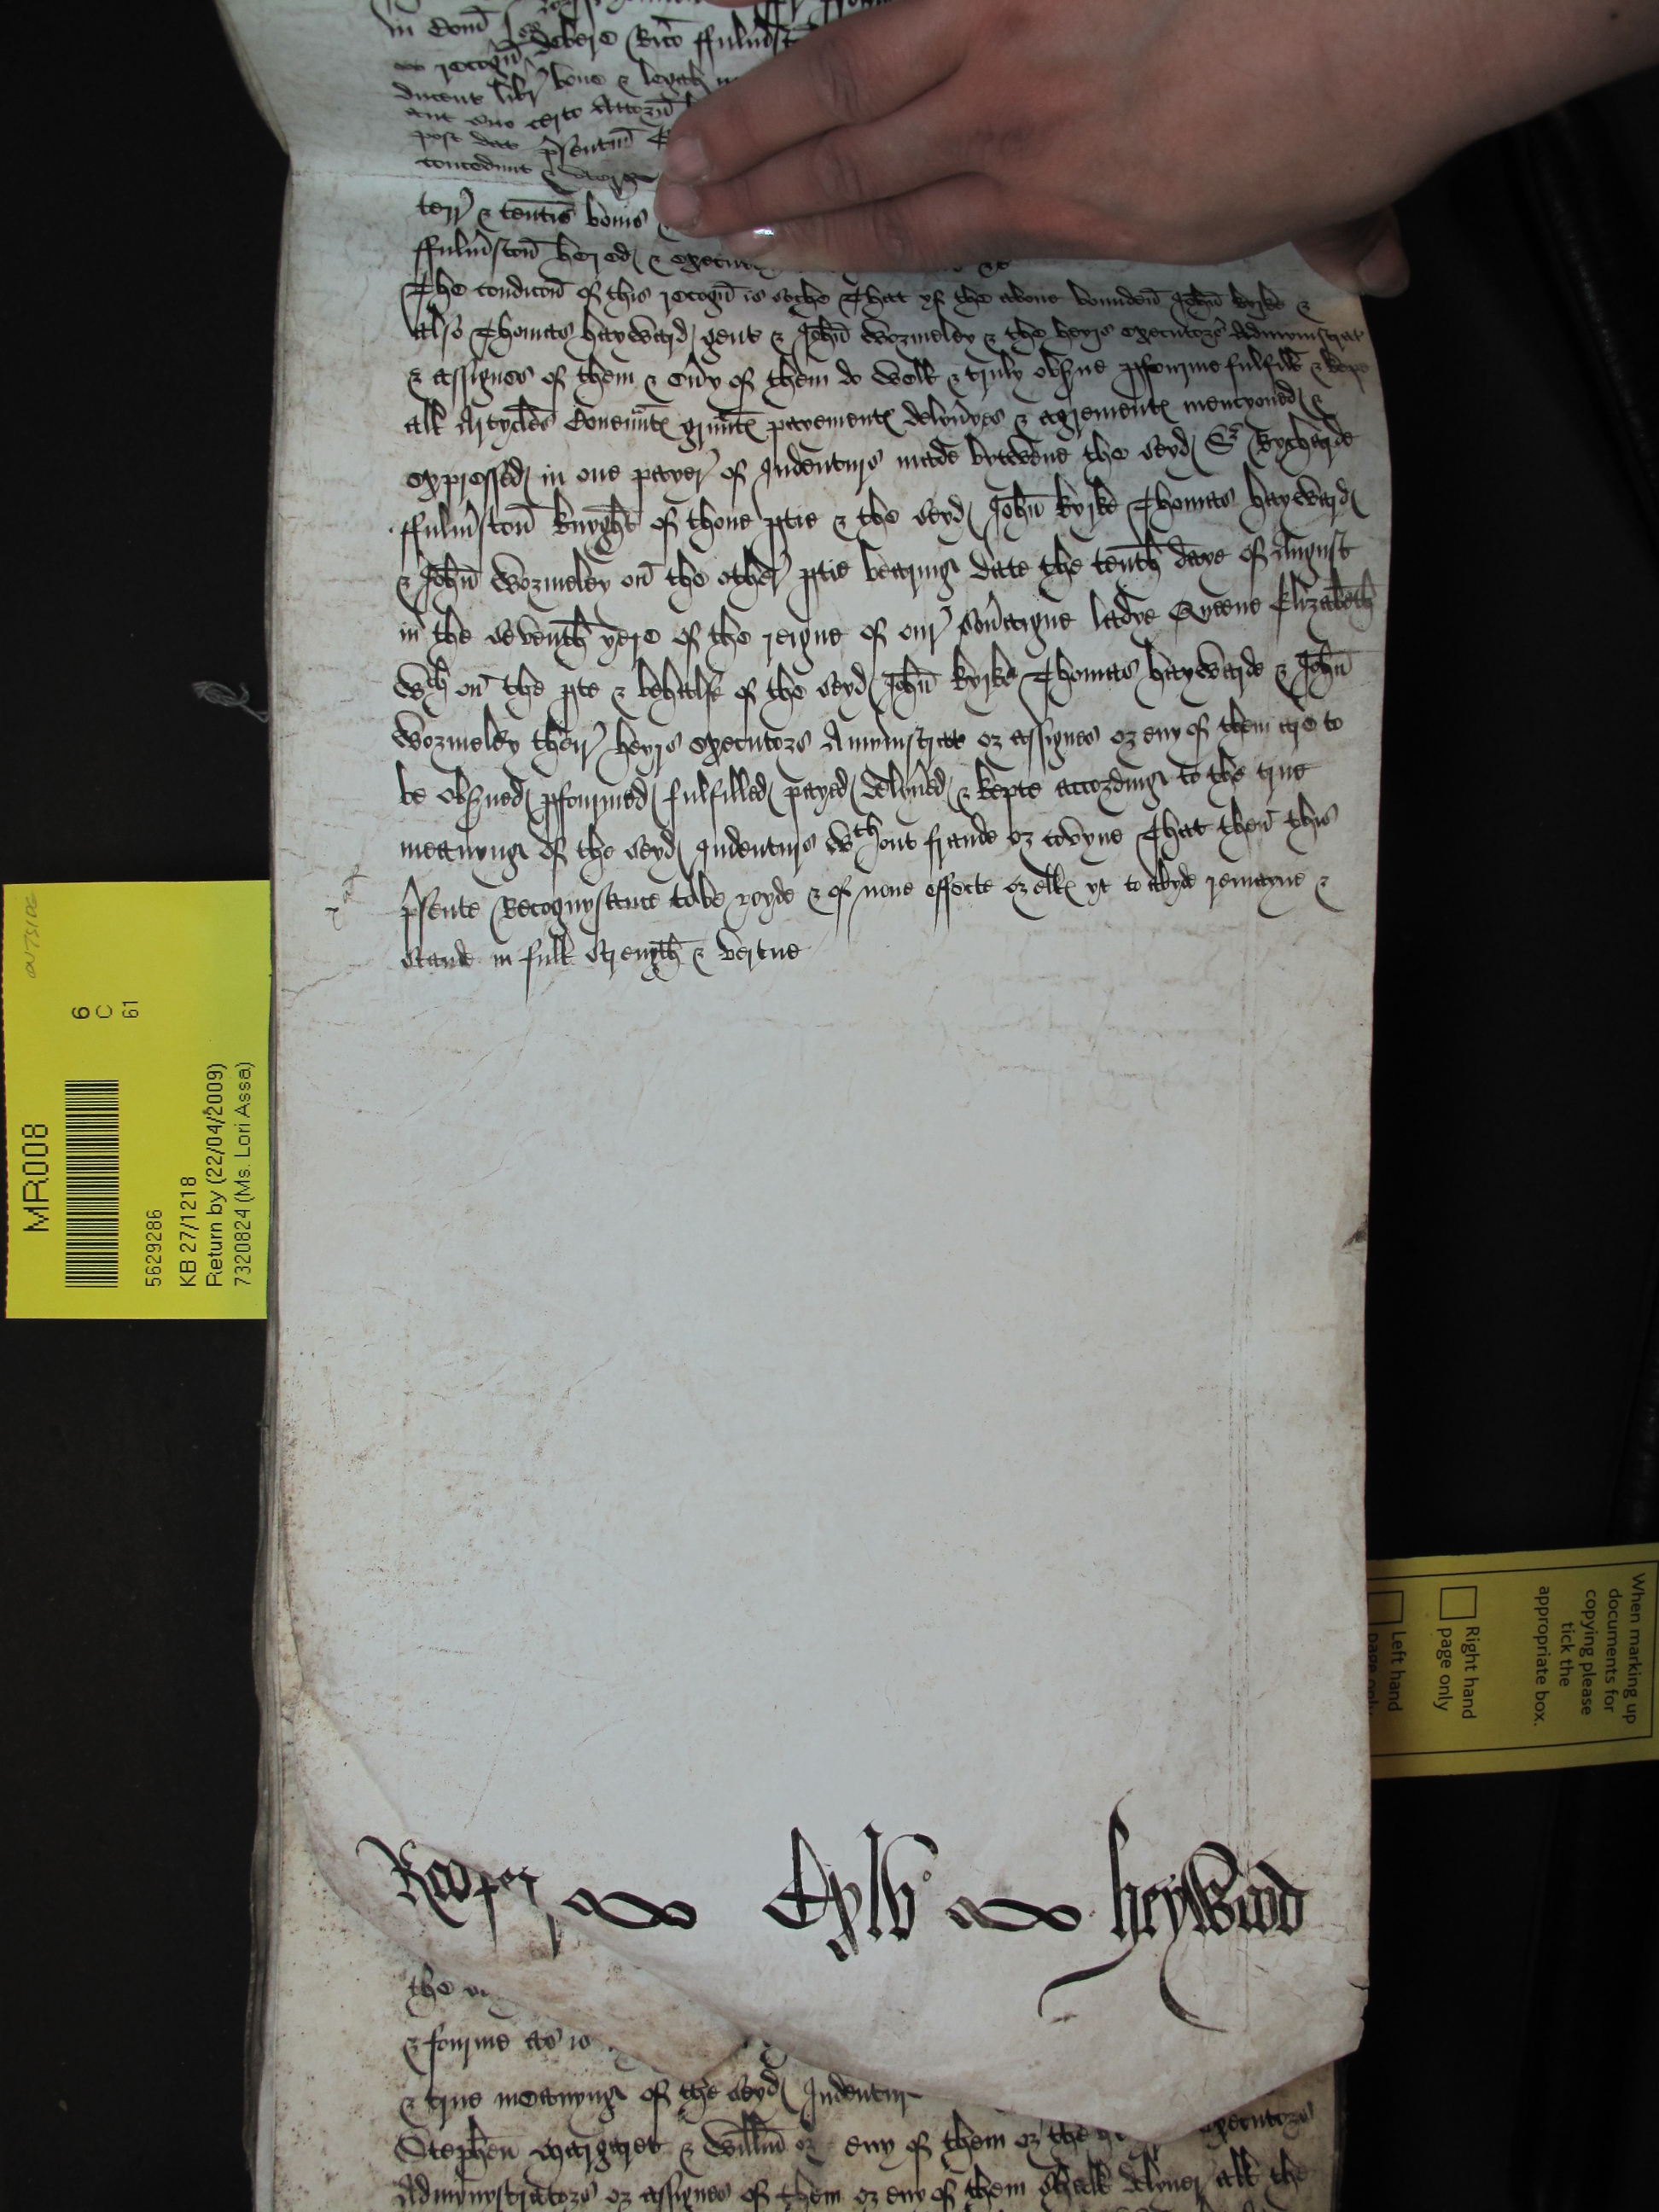 in Com̄
recogn̄ debere Ric̄o ffulm̄st
ducent libr̄ bone & legał
aut suo certo Attorn̄
post dat p̄sentiū
concedunt &
terr̄ & ten̄tis bonis
ffulm̄ston̄ hered &
The condic̄on̄ of this recogn̄ is suche That yf the above bounden̄ Joħn kyrke &
also Thomas hayward gent & Joħn Wormeley & the heyrs executors Admynistrat
& assignes of them & ev̄y of them do well & truly obs̄ve pfourme fulfill & kepe
all Artycles Coven̄nt grūnt payement delyv̄yes & agrement mencyoned &
expressed in one payer̄ of Indenturs made bytwene the seyd Sr Rycharde
ffulm̄ston̄ knyght of thone ptie & the seyd Joħn kyrke Thomas hayward
& Joħn Wormeley on̄ the other̄ ptie bearing date the tenth daye of August
in the seventh yere of the reigne of our̄ sov̄aigne ladye Queene Elizabeth
Wth on̄ the pte & behalfe of the seyd Joħn kyrke Thomas haywarde & Joħn
Wormeley their̄ heyrs executors Amynistrat or assignes or eny of them are to
be obs̄ved pfourmed fulfilled payed delyv̄ed & kepte according to the true
meanyng of the seyd Indenturs wthout fraude or covyne That then̄ this
p̄sente Recognysance to be voyde & of none effecte or ell yt to abyde remayne &
stande in full strength & vertue
Rooper heyward
the
& fourme as is
& true meanyng of the seyd Indentur
Stephen̄ margaret & Willm̄ or eny of them or the executors
Admynystrators or assignes of them or eny of them shall delyver all the
MR008
6
C
61
5629286
KB 27/1218
Return by (22/04/2009)
7320824 (Ms. Lori Assa)
When marking up
documents for
copying please
tick the
appropriate box.
Right hand
page only
Left hand
page only